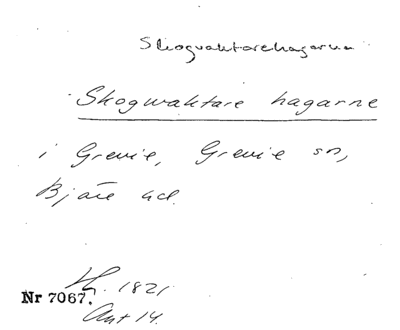 Skogvaktarehagarna
Skogwaktare hagarne
i Grevie, Grevie sn,
Bjäre hd.
1821
Nr 7067.
Akt 14.